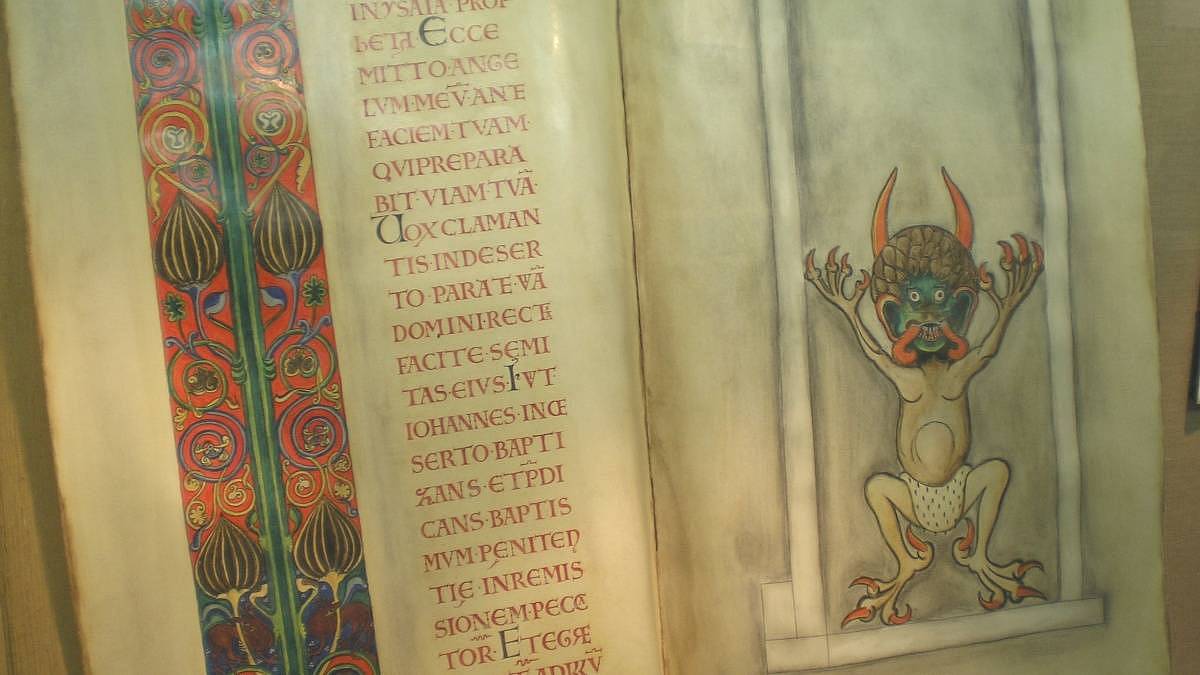 INYSAIA·PROP
hETA ECCE
MITTO·ANGE
LVM·MEV̄·ANTE
FACIEM·TVAM·
QVI PREPARA
BIT·VIAM TVĀ·
UOX CLAMAN
TIS·INDESER
TO·PARATE·VĀ
DOMINI·RECTA
FACITE·SEMI
TAS·EIVS·FVIT
IOHANNES·INDE
SERTO·BAPTI
ZANS·ET P̄DI
CANS·BAPTIS
MVM·PENITEN
TIE·INREMIS
SIONEM·PECCA
TOR·ET EGRE